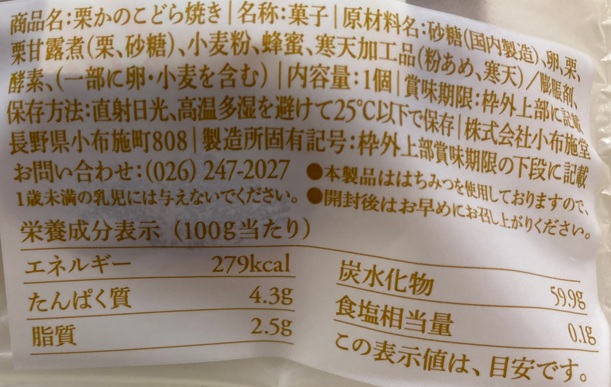 商品名:栗かのこどら焼き|名称:菓子|原材料名:砂糖(国内製造)、卵、栗、
栗甘露煮(栗、砂糖)、小麦粉、蜂蜜、寒天加工品(粉あめ、寒天)/膨脹剤、
酵素、(一部に卵・小麦を含む)|内容量:1個|賞味期限:枠外上部に記載
保存方法:直射日光、高温多湿を避けて25℃以下で保存|株式会社小布施堂
長野県小布施町808|製造所固有記号:枠外上部賞味期限の下段に記載
お問い合わせ:(026) 247-2027 ●本製品ははちみつを使用しておりますので、
1歳未満の乳児には与えないでください。 ●開封後はお早めにお召し上がりください。
栄養成分表示 (100g当たり)
エネルギー 279kcal
たんぱく質 4.3g
脂質 2.5g
炭水化物 59.9g
食塩相当量 0.1g
この表示値は、目安です。